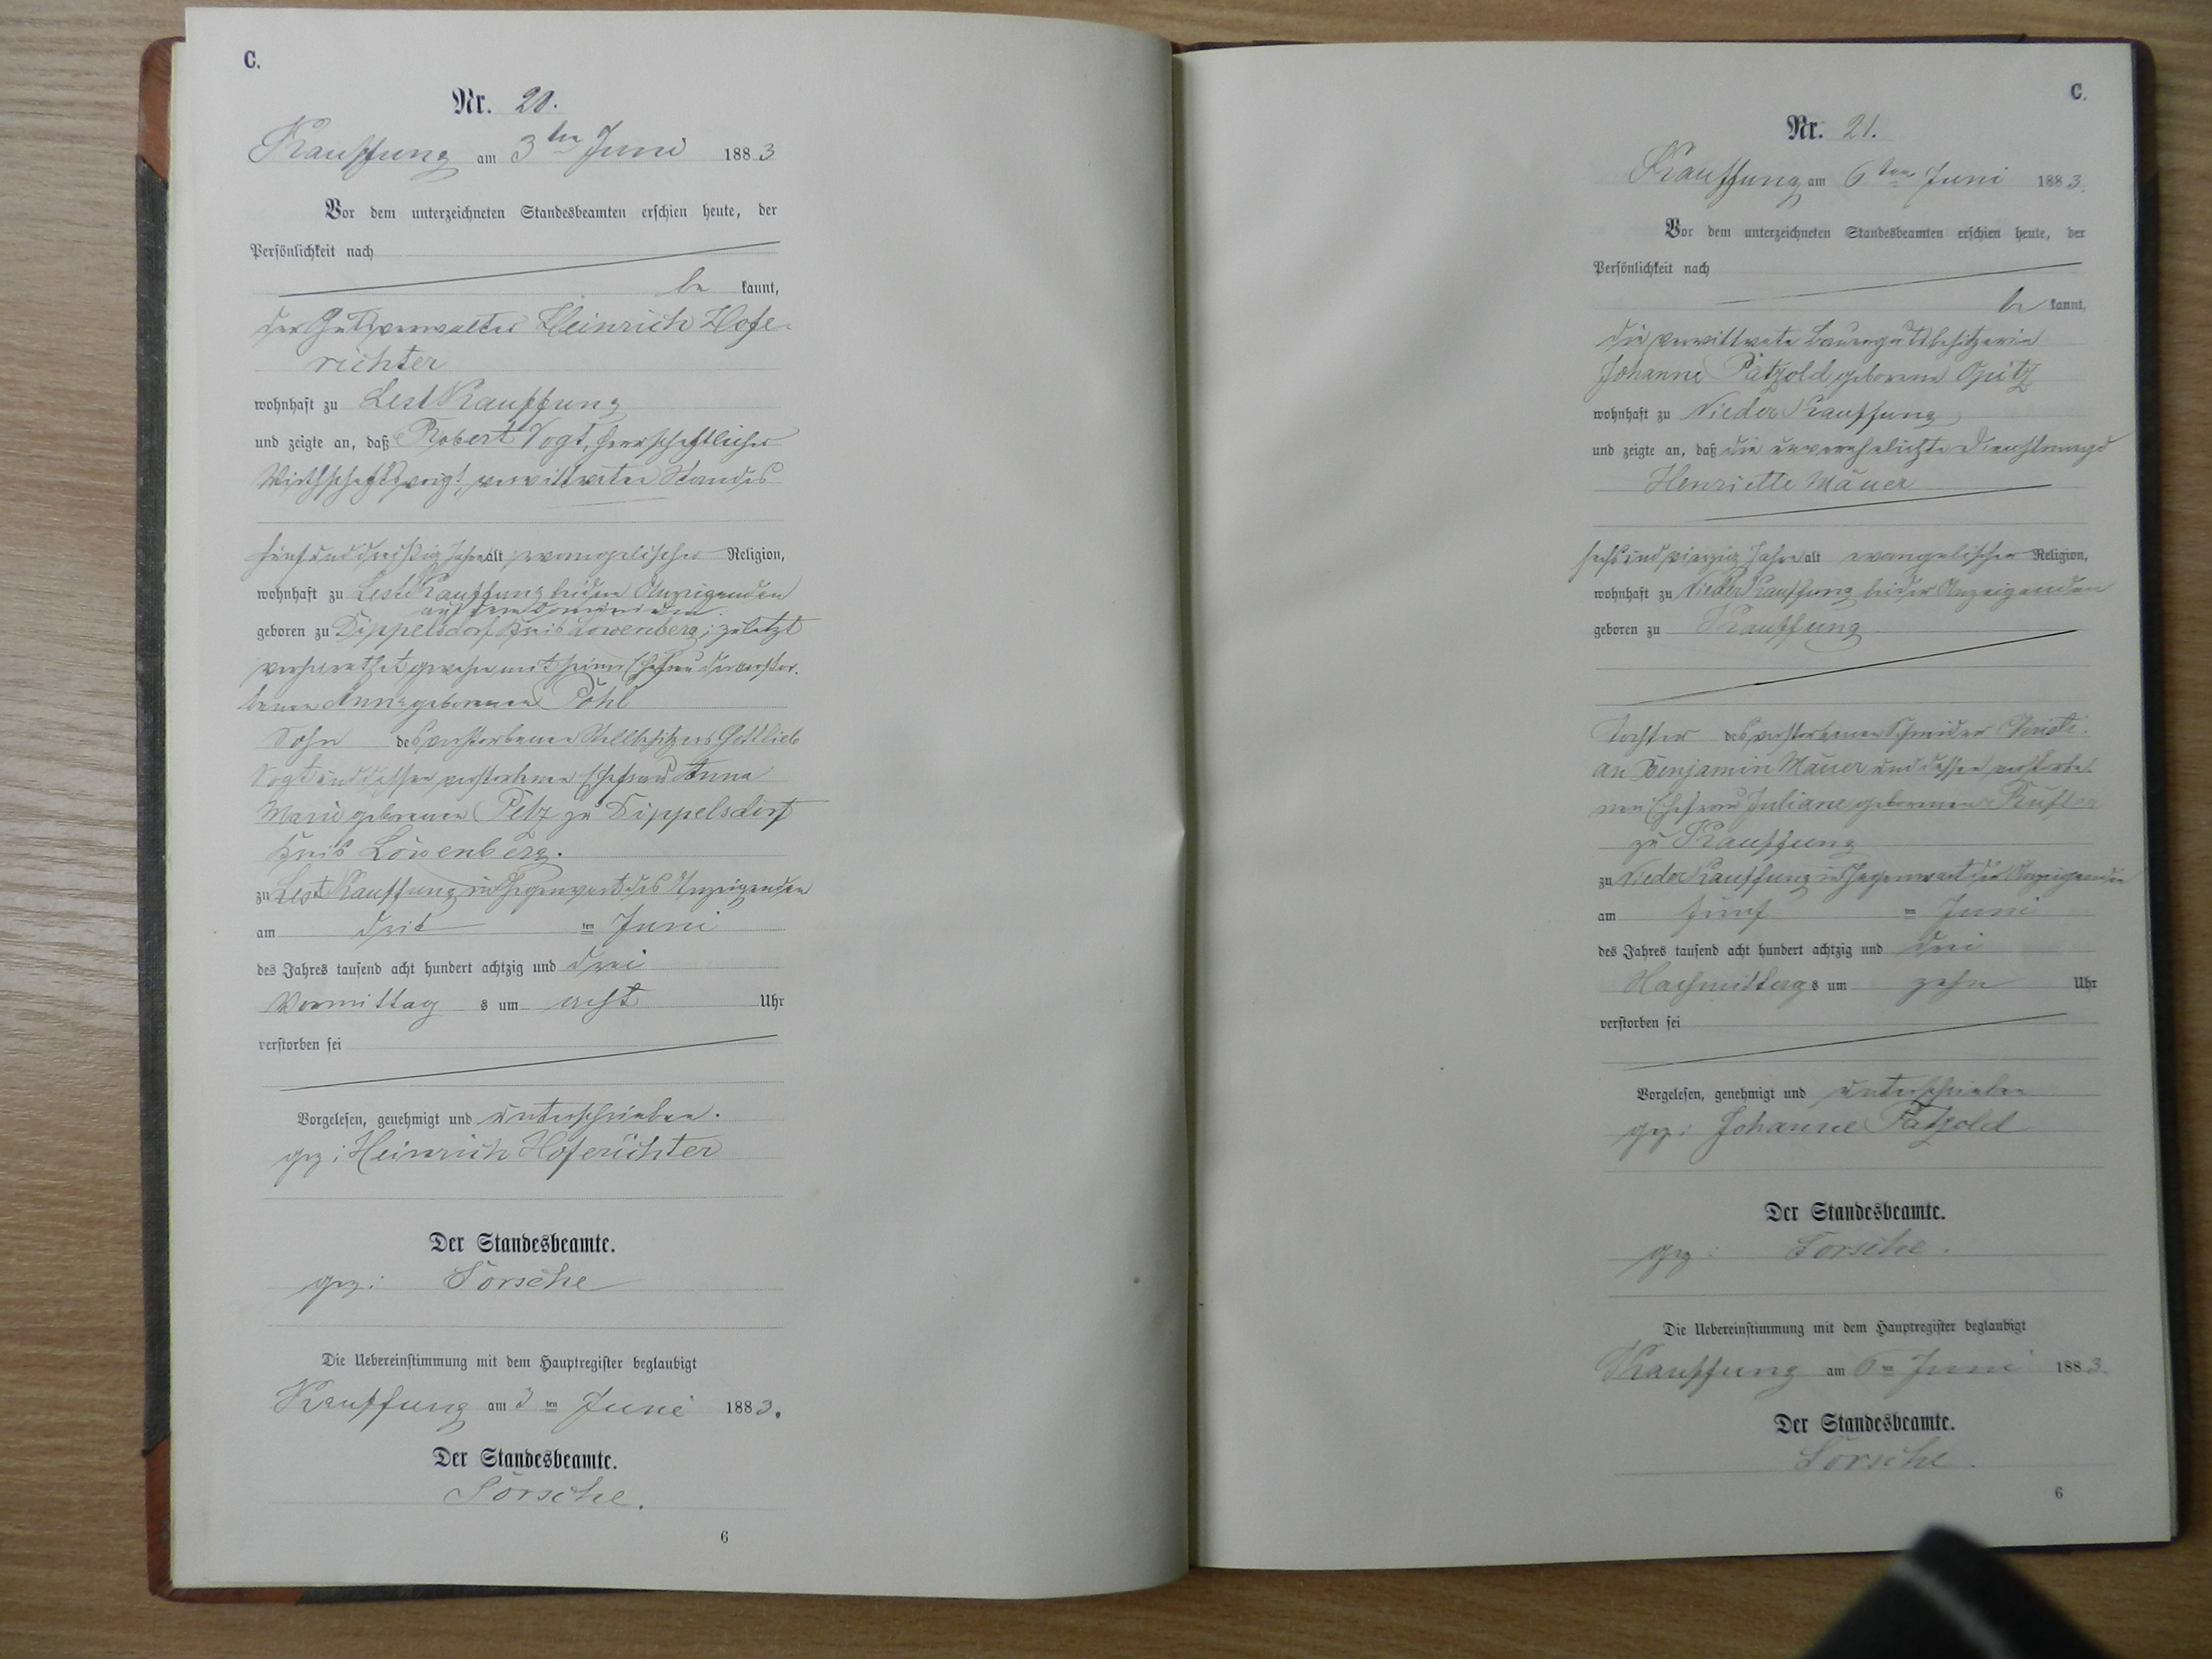 C.
Nr. 20.
Kauffung am 3ten Juni 1883
Vor dem unterzeichneten Standesbeamten erschien heute, der
Persönlichkeit nach
be kannt,
der Gutsverwalter Heinrich Hofe-
richter
wohnhaft zu Lest Kauffung
und zeigte an, daß Robert Vogt, herrschaftlicher
Wirthschaftsvoigt, verwittweten Standes
fünf und dreißig Jahre alt evangelischer Religion,
wohnhaft zu Lest Kauffung bei dem Anzeigenden
auf dem Dominium
geboren zu Dippelsdorf Kreis Löwenberg; zuletzt
verheirathet gewesen mit seiner Ehefrau der verstor-
benen Anna geborenen Pohl
Sohn des verstorbenen Stellbesitzers Gottlieb
Vogt und dessen verstorbenen Ehefrau Anna
Marie geborenen Pelz zu Dippelsdorf
Kreis Löwenberg.
zu Lest Kauffung in Gegenwart des Anzeigenden
am drit ten Juni
des Jahres tausend acht hundert achtzig und drei
Vormittag s um acht Uhr
verstorben sei
Vorgelesen, genehmigt und unterschrieben.
gez: Heinrich Hoferichter
Der Standesbeamte.
gez: Sorsche
Die Uebereinstimmung mit dem Hauptregister beglaubigt
Kauffung am 3 ten Juni 1883.
Der Standesbeamte.
Sorsche.
6
C.
Nr. 21.
Kauffung am 6ten Juni 1883.
Vor dem unterzeichneten Standesbeamten erschien heute, der
Persönlichkeit nach
be kannt,
die verwittwete Bauergutsbesitzerin
Johanne Pätzold geborene Opitz
wohnhaft zu Nieder Kauffung
und zeigte an, daß die unverehelichte Dienstmagd
Henriette Mäuer
sechs und vierzig Jahre alt evangelischer Religion,
wohnhaft zu Nieder Kauffung bei der Anzeigenden
geboren zu Kauffung
Tochter des verstorbenen Schneider Christi-
an Benjamin Mäuer und dessen verstorbe-
nen Ehefrau Juliane geborenen
zu Kauffung
zu Nieder Kauffung in Gegenwart der Anzeigenden
am fünf ten Juni
des Jahres tausend acht hundert achtzig und drei
Nachmittag s um zehn Uhr
verstorben sei
Vorgelesen, genehmigt und unterschrieben
gez: Johanne Pätzold
Der Standesbeamte.
gez: Sorsche.
Die Uebereinstimmung mit dem Hauptregister beglaubigt
Kauffung am 6 ten Juni 1883.
Der Standesbeamte.
Sorsche.
6